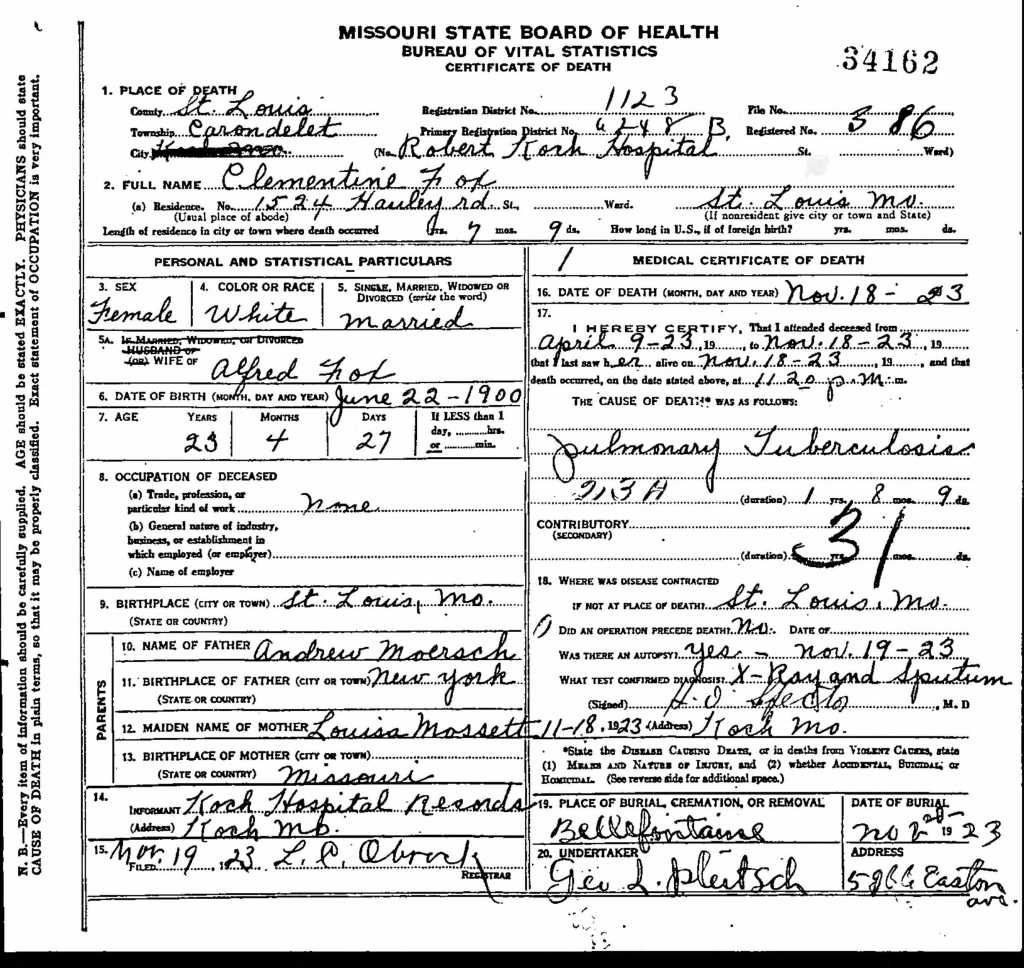 MISSOURI STATE BOARD OF HEALTH
BUREAU OF VITAL STATISTICS
CERTIFICATE OF DEATH
34162
1. PLACE OF DEATH
County St. Louis Registration District No. 1123 File No.
Township Carondelet Primary Registration District No. 6248 B. Registered No. 386
City (No. Robert Koch Hospital St. Ward)
2. FULL NAME Clementine Fox
(a) Residence. No. 1524 Hauley rd. St., Ward. St. Louis Mo.
(Usual place of abode) (If nonresident give city or town and State)
Length of residence in city or town where death occurred yrs. 7 mos. 9 ds. How long in U.S., if of foreign birth? yrs. mos. ds.
PERSONAL AND STATISTICAL PARTICULARS
3. SEX 4. COLOR OR RACE 5. SINGLE, MARRIED, WIDOWED OR DIVORCED (write the word)
Female White Married
5A. IF MARRIED, WIDOWED, OR DIVORCED
HUSBAND OF
(OR) WIFE OF Alfred Fox
6. DATE OF BIRTH (MONTH, DAY AND YEAR) June 22-1900
7. AGE YEARS MONTHS DAYS If LESS than 1
23 4 27 day, hrs.
or min.
8. OCCUPATION OF DECEASED
(a) Trade, profession, or
particular kind of work None
(b) General nature of industry,
business, or establishment in
which employed (or employer)
(c) Name of employer
9. BIRTHPLACE (CITY OR TOWN) St. Louis, Mo.
(STATE OR COUNTRY)
PARENTS
10. NAME OF FATHER Andrew Moersch
11. BIRTHPLACE OF FATHER (CITY OR TOWN) New York
(STATE OR COUNTRY)
12. MAIDEN NAME OF MOTHER Louisa Mossett
13. BIRTHPLACE OF MOTHER (CITY OR TOWN)
(STATE OR COUNTRY) Missouri
14. INFORMANT Koch Hospital Records
(Address) Koch Mo.
15. FILED Nov. 19, 23 L. C. Obrock
REGISTRAR
1
MEDICAL CERTIFICATE OF DEATH
16. DATE OF DEATH (MONTH, DAY AND YEAR) Nov. 18- 23
17.
I HEREBY CERTIFY, That I attended deceased from
April 9-23, 19 , to Nov. 18-23, 19
that I last saw her alive on Nov. 18-23, 19 , and that
death occurred, on the date stated above, at 11 20 p. M. m.
THE CAUSE OF DEATH* WAS AS FOLLOWS:
Pulmonary Tuberculosis
213A (duration) 1 yrs. 8 mos. 9 ds.
CONTRIBUTORY 31
(SECONDARY)
(duration) yrs. mos. ds.
18. WHERE WAS DISEASE CONTRACTED
IF NOT AT PLACE OF DEATH? St. Louis, Mo.
DID AN OPERATION PRECEDE DEATH? No. DATE OF
WAS THERE AN AUTOPSY? Yes - Nov. 19-23
WHAT TEST CONFIRMED DIAGNOSIS? X-Ray and Sputum
(Signed) , M. D
11-18, 1923 (Address) Koch Mo.
*State the DISEASE CAUSING DEATH, or in deaths from VIOLENT CAUSES, state
(1) MEANS AND NATURE OF INJURY, and (2) whether ACCIDENTAL, SUICIDAL, or
HOMICIDAL. (See reverse side for additional space.)
19. PLACE OF BURIAL, CREMATION, OR REMOVAL DATE OF BURIAL
Bellefontaine Nov 20- 1923
20. UNDERTAKER ADDRESS
Geo L. Pleitsch 5966 Easton
ave.
N. B.—Every item of information should be carefully supplied. AGE should be stated EXACTLY. PHYSICIANS should state
CAUSE OF DEATH in plain terms, so that it may be properly classified. Exact statement of OCCUPATION is very important.